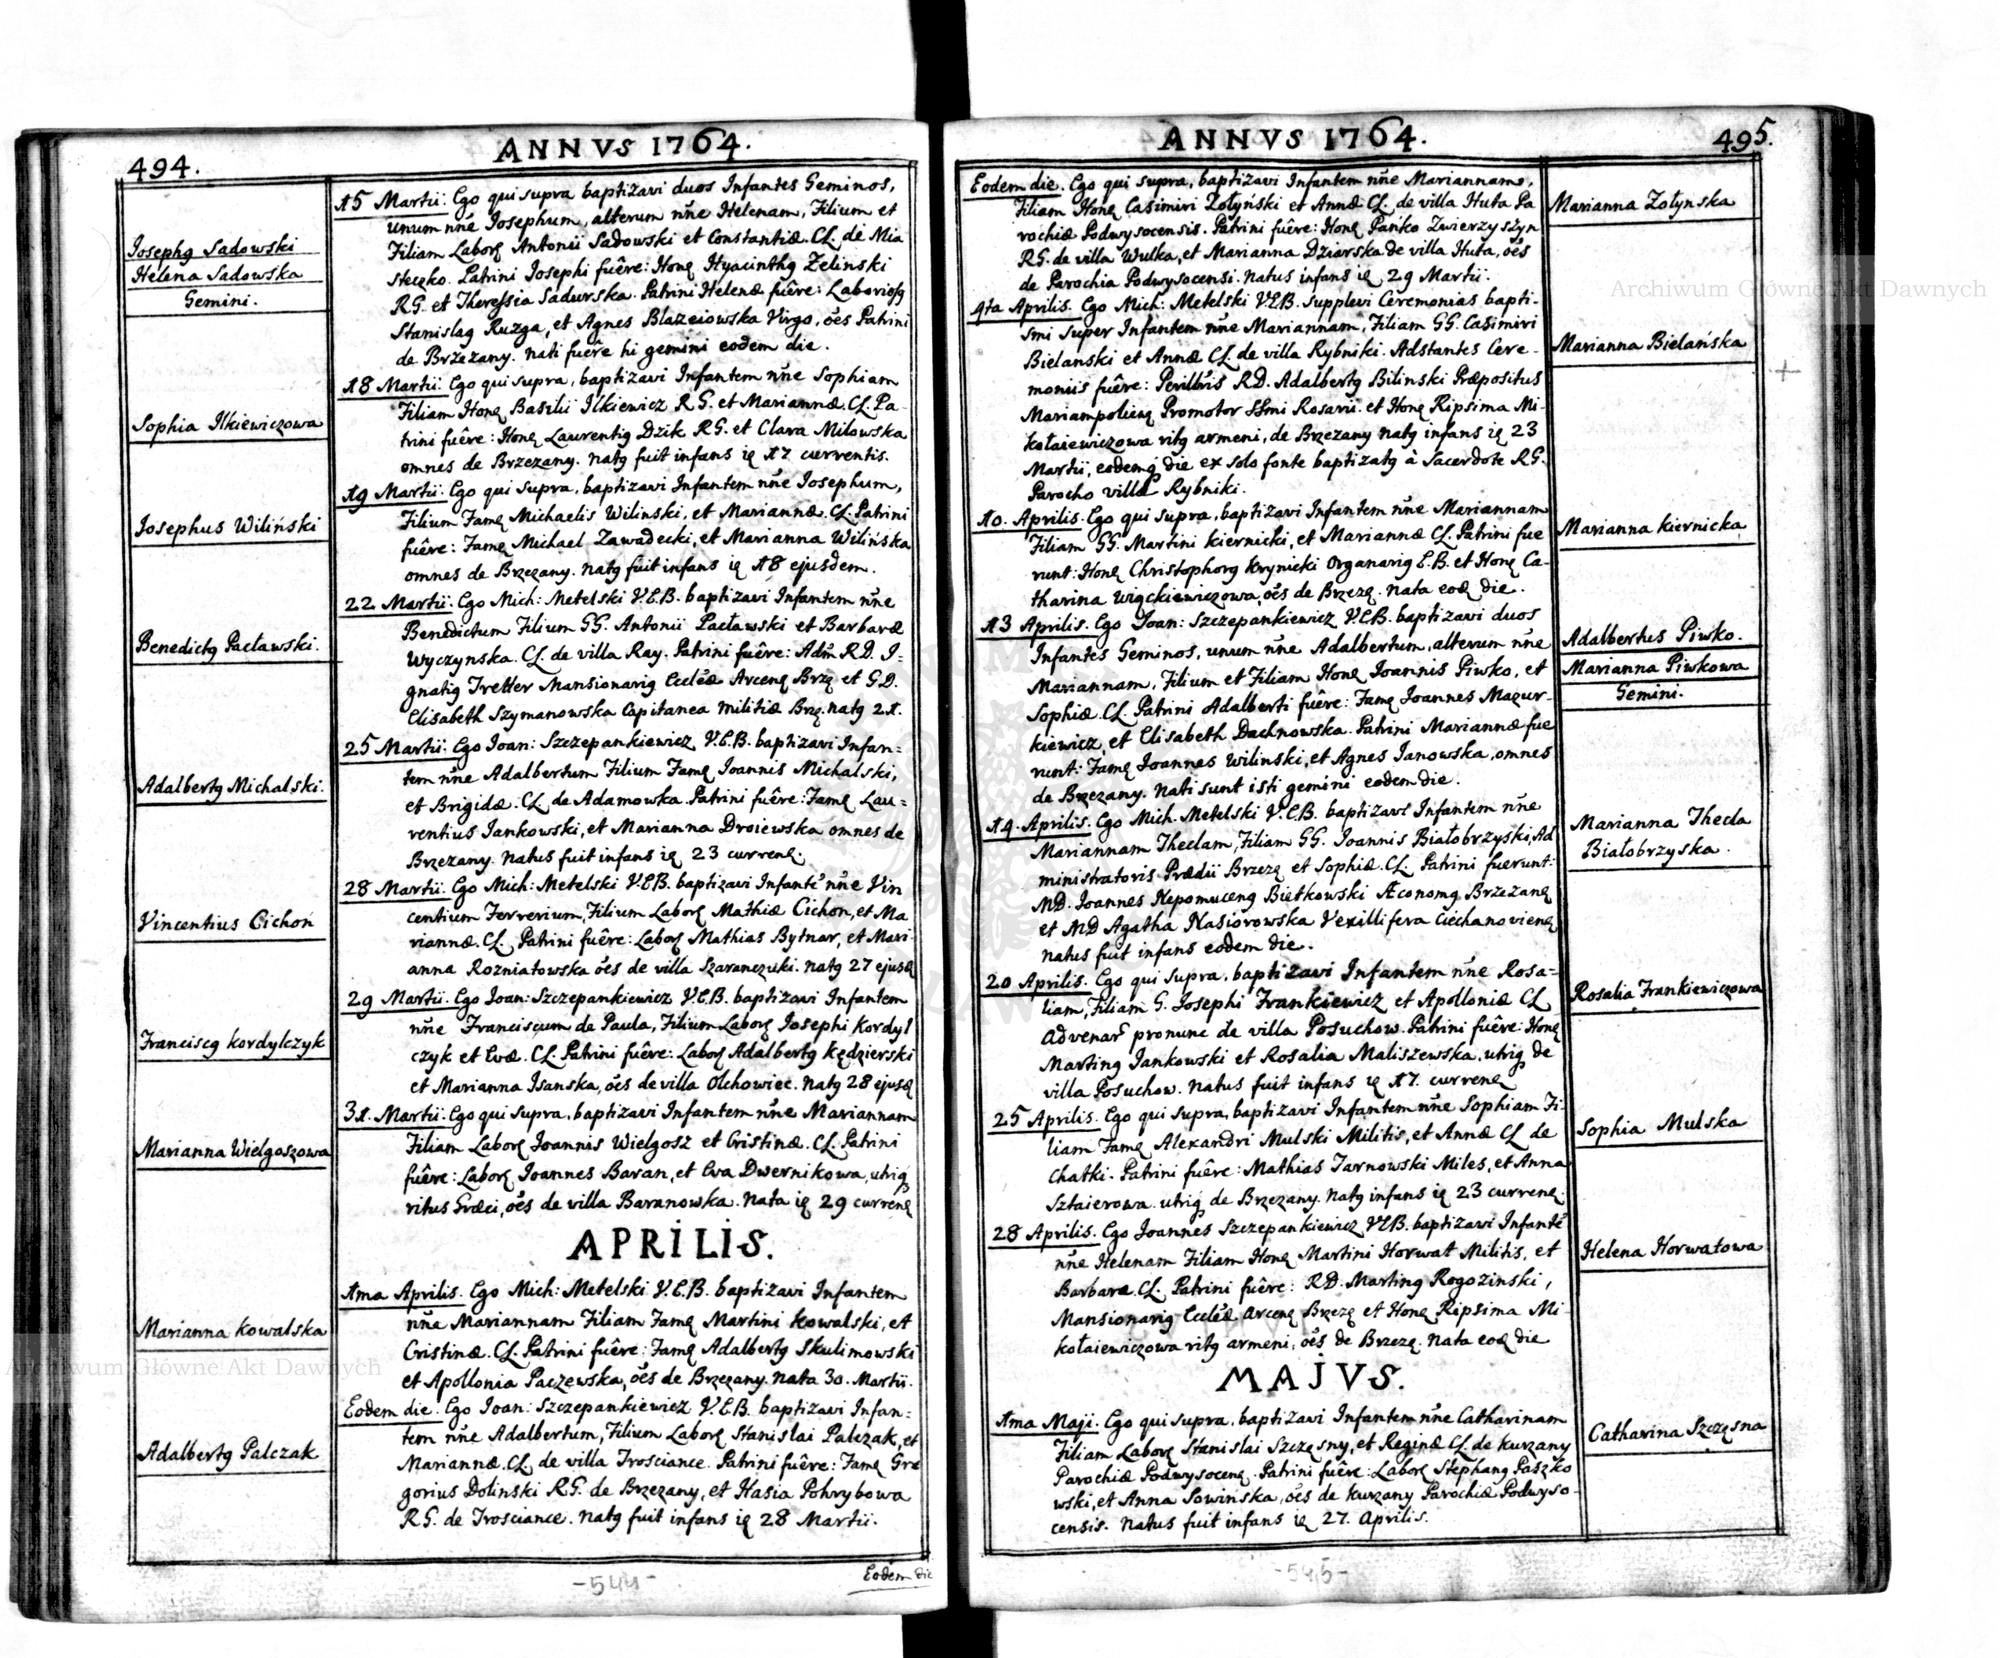 494.
ANNVS 1764.
Josephꝯ Sadowski
Helena Sadowska
Gemini.
15 Martii. Ego qui supra baptizavi duos Infantes Geminos,
unum nñe Josephum, alterum nñe Helenam, Filium et
Filiam Laborꝭ Antonii Sadowski et Constantiæ. CL. de Mia
steczko. Patrini Josephi fuêre: Honꝭ Hyacinthꝯ Zelinski
RG. et Theressia Sadurska. Patrini Helenæ fuêre: Laboriosꝯ
Stanislaꝯ Ruzga, et Agnes Blazeiowska Virgo, oẽs Patrini
de Brzezany. nati fuêre hi gemini eodem die.
Sophia Ilkiewiczowa
18 Martii. Ego qui supra, baptizavi Infantem nñe Sophiam
Filiam Honꝭ Basilii Ilkiewicz RG. et Mariannæ. CL. Pa-
trini fuêre: Honꝭ Laurentiꝯ Dzik RG. et Clara Milowska
omnes de Brzezany. natꝯ fuit infans iꝭ 17 currentis.
Josephus Wiliński
19 Martii. Ego qui supra, baptizavi Infantem nñe Josephum,
Filium Famꝭ Michaelis Wilinski, et Mariannæ. CL. Patrini
fuêre: Famꝭ Michael Zawadecki, et Marianna Wilińska
omnes de Brzezany. natꝯ fuit infans iꝭ 18 ejusdem.
Benedictꝯ Pacławski.
22 Martii. Ego Mich: Metelski V.E.B. baptizavi Infantem nñe
Benedictum Filium GG. Antonii Pacławski et Barbaræ
Wyczynska. CL. de villa Ray. Patrini fuêre: Adm̃ R.D. I=
gnatiꝯ Tretter Mansionariꝯ Eccléæ Arcenꝭ Brzꝭ et G.D.
Elisabeth Szymanowska Capitanea militiæ Brzꝭ. natꝯ 21.
Adalbertꝯ Michalski.
25 Martii. Ego Joan: Szczepankiewicz V.E.B. baptizavi Infan=
tem nñe Adalbertum Filium Famꝭ Joannis Michalski,
et Brigidæ. CL. de Adamowka. Patrini fuêre: Famꝭ Lau=
rentius Jankowski, et Marianna Droiewska omnes de
Brzezany. natus fuit infans iꝭ 23 currenꝭ.
Vincentius Cichoń
28 Martii. Ego Mich: Metelski V.E.B. baptizavi Infantẽ nñe Vin
centium Ferrerium, Filium Laborꝭ Mathiæ Cichon, et Ma
riannæ. CL. Patrini fuêre: Laborꝭ Mathias Bytnar, et Mari-
anna Rozniatowska oẽs de villa Szaranczuki. natꝯ 27 ejusꝭ
Franciscꝯ Kordylczyk
29 Martii. Ego Joan: Szczepankiewicz V.E.B. baptizavi Infantem
nñe Franciscum de Paula, Filium Laborꝭ Josephi Kordyl
czyk et Evæ. CL. Patrini fuêre: Laborꝭ Adalbertꝯ Kędzierski
et Marianna Isanska, oẽs de villa Olchowiec. natꝯ 28 ejusꝭ
Marianna Wielgoszowa
31. Martii. Ego qui supra, baptizavi Infantem nñe Mariannam
Filiam Laborꝭ Joannis Wielgosz et Cristinæ. CL. Patrini
fuêre: Laborꝭ Joannes Baran, et Eva Dwernikowa, utriꝯ
ritus Græci, oẽs de villa Baranowka. nata iꝭ 29 currenꝭ
APRILIS.
Marianna Kowalska
1ma Aprilis. Ego Mich: Metelski V.E.B. baptizavi Infantem
nñe Mariannam Filiam Famꝭ Martini Kowalski, et
Cristinæ. CL. Patrini fuêre: Famꝭ Adalbertꝯ Skulimowski
et Apollonia Paczewska, oẽs de Brzezany. nata 30. Martii.
Adalbertꝯ Palczak
Eodem die. Ego Joan: Szczepankiewicz V.E.B. baptizavi Infan=
tem nñe Adalbertum, Filium Laborꝭ Stanislai Palczak, et
Mariannæ. CL. de villa Trosciance. Patrini fuêre: Famꝭ Gre
gorius Dolinski R.G. de Brzezany, et Hasia Pohrybowa
R.G. de Trosciance. natꝯ fuit infans iꝭ 28 Martii.
Eodem die
-544-
ANNVS 1764.
495.
Eodem die. Ego qui supra, baptizavi Infantem nñe Mariannam,
Filiam Honꝭ Casimiri Zołyński et Annæ CL. de villa Huta Pa
rochiæ Podwysocensis. Patrini fuêre: Honꝭ Panko Zwierzyszyn
RG. de villa Wulka, et Marianna Dziarska de villa Huta, oẽs
de Parochia Podwysocensi. natus infans iꝭ 29 Martii.
Marianna Zołynska
4ta Aprilis. Ego Mich: Metelski V.E.B. supplevi Ceremonias bapti-
smi super Infantem nñe Mariannam, Filiam GG. Casimiri
Bielanski et Annæ CL. de villa Rybniki. Adstantes Cere-
moniis fuêre: Perillũis RD. Adalbertꝯ Bilinski Præpositus
Mariampolienꝭ Promotor SSmi Rosarii. et Honꝭ Ripsima Mi-
kołaiewiczowa ritꝯ armeni, de Brzezany natꝯ infans iꝭ 23
Martii, eodemq́ die ex solo fonte baptizatꝯ à Sacerdote RG.
Parocho villæ Rybniki.
Marianna Bielańska
10. Aprilis. Ego qui supra, baptizavi Infantem nñe Mariannam
Filiam GG. Martini Kiernicki, et Mariannæ CL. Patrini fue
runt: Honꝭ Christophorꝯ Krynicki Organariꝯ E.B. et Honꝭ Ca-
tharina Wiąckiewiczowa, oẽs de Brzezꝭ. nata eoꝭ die.
Marianna Kiernicka
13 Aprilis. Ego Joan: Szczepankiewicz V.E.B. baptizavi duos
Infantes Geminos, unum nñe Adalbertum, alterum nñe
Mariannam, Filium et Filiam Honꝭ Joannis Piwko, et
Sophiæ. CL. Patrini Adalberti fuêre: Famꝭ Joannes Mazur-
kiewicz, et Elisabeth Dachnowska. Patrini Mariannæ fue
runt: Famꝭ Joannes Wilinski, et Agnes Janowska, omnes
de Brzezany. Nati sunt isti gemini eodem die.
Adalbertus Piwko.
Marianna Piwkowa
Gemini.
14. Aprilis. Ego Mich. Metelski V.E.B. baptizavi Infantem nñe
Mariannam Theclam, Filiam GG. Joannis Białobrzyski, Ad
ministratoris Prædii Brzezꝭ et Sophiæ. CL. Patrini fuerunt:
MD. Joannes Nepomucenꝯ Bietkowski Æconomꝯ Brzezanꝭ
et MD Agatha Nasiorowska Vexillifera Ciechanovienꝭ
natus fuit infans eodem die.
Marianna Thecla
Białobrzyska.
20 Aprilis. Ego qui supra, baptizavi Infantem nñe Rosa=
liam, Filiam G. Josephi Frankiewicz et Apolloniæ CL
Advenar̃ pronunc de villa Posuchow. Patrini fuêre: Honꝭ
Martinꝯ Jankowski et Rosalia Maliszewska, utriꝯ de
villa Posuchow. natus fuit infans iꝭ 17. currenꝭ
Rosalia Frankiewiczowa
25 Aprilis. Ego qui supra, baptizavi Infantem nñe Sophiam Fi-
liam Famꝭ Alexandri Mulski Militis, et Annæ CL de
Chatki. Patrini fuêre: Mathias Tarnowski Miles, et Anna
Sztaierowa. utriꝯ de Brzezany. natꝯ infans iꝭ 23 currenꝭ.
Sophia Mulska
28 Aprilis. Ego Joannes Szczepankiewicz V.E.B. baptizavi Infantẽ
nñe Helenam Filiam Honꝭ Martini Horwat Militis, et
Barbaræ. CL. Patrini fuêre: RD. Martinꝯ Rogozinski,
Mansionariꝯ Eccléæ Arcenꝭ Brzezꝭ et Honꝭ Ripsima Mi-
kołaiewiczowa ritꝯ armeni, oẽs de Brzezꝭ. nata eoꝭ die
Helena Horwatowa
MAJVS.
1ma Maji. Ego qui supra, baptizavi Infantem nñe Catharinam
Filiam Laborꝭ Stanislai Szczęsny, et Reginæ CL. de Kurzany
Parochiæ Podwysocenꝭ. Patrini fuêre: Laborꝭ Stephanꝯ Paszko
wski, et Anna Sowińska, oẽs de Kurzany Parochiæ Podwyso-
censis. natus fuit infans iꝭ 27. Aprilis.
Catharina Szczęsna
-545-
Archiwum Główne Akt Dawnych
Archiwum Główne Akt Dawnych